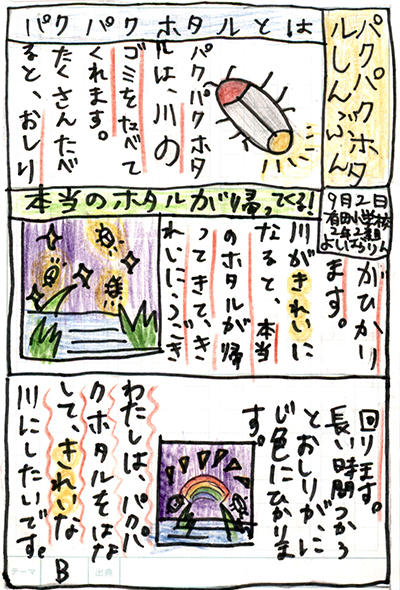 パクパクホタ
ルしんぶん
9月2日
有田小学校
2年2組
よしはらりん
パクパクホタルとは
パクパクホタ
ルは、川の
ゴミをたべて
くれます。
たくさんたべ
ると、おしり
がひかり
ます。
本当のホタルが帰ってくる!
川がきれいに
なると、本当
のホタルが帰
ってきて、き
れいにうごき
回ります。
長い時間つかう
とおしりが、に
じ色にひかりま
す。
わたしは、パクパ
クホタルをはな
して、きれいな
川にしたいです。
B
テーマ
出典